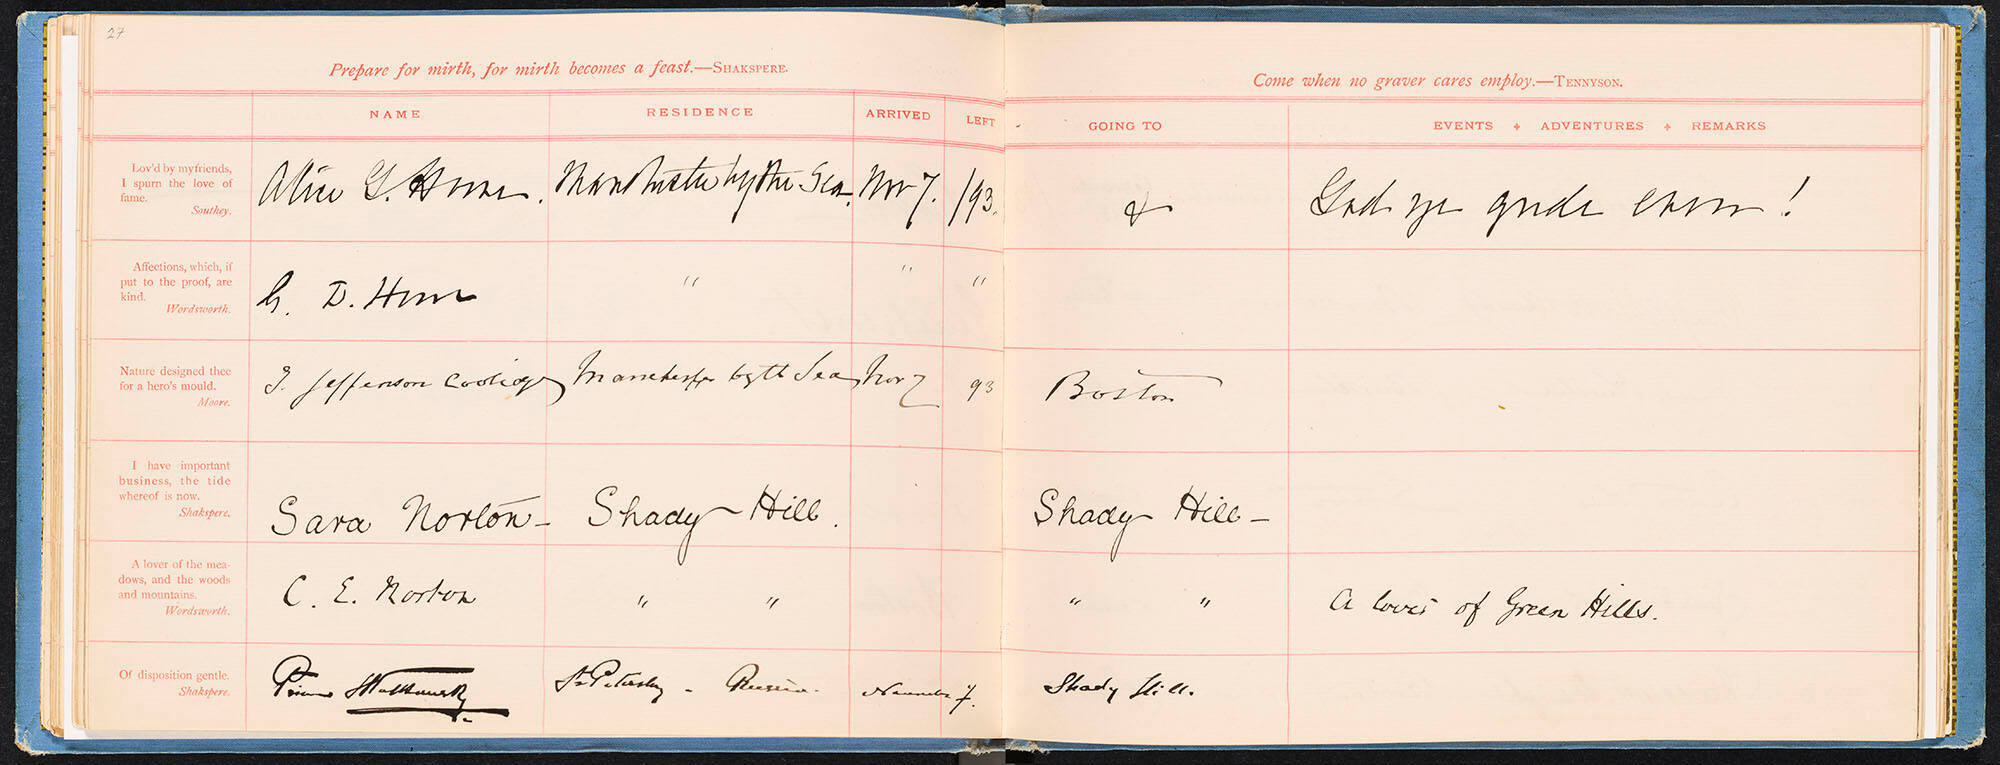 27
Prepare for mirth, for mirth becomes a feast.—SHAKSPERE.
Come when no graver cares employ.—TENNYSON.
NAME RESIDENCE ARRIVED LEFT GOING TO EVENTS ✦ ADVENTURES ✦ REMARKS
Lov'd by my friends,
I spurn the love of
fame.
Southey.
Alice G. Howe. Manchester by the Sea. Nov 7. /93.
Affections, which, if
put to the proof, are
kind.
Wordsworth.
G. D. Howe " " "
Nature designed thee
for a hero's mould.
Moore.
T. Jefferson Coolidge Manchester by the Sea Nov 7 93 Boston
I have important
business, the tide
whereof is now.
Shakspere.
Sara Norton – Shady Hill. Shady Hill –
A lover of the mea-
dows, and the woods
and mountains.
Wordsworth.
C. E. Norton " " " " A lover of Green Hills.
Of disposition gentle.
Shakspere.
Prince Wolkonsky St Petersbg - Russia. November 7. Shady Hill.